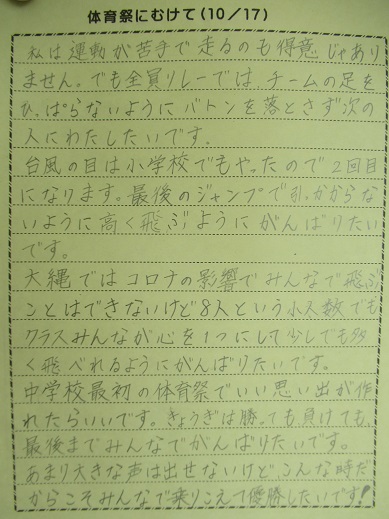 体育祭にむけて(10/17)
私は運動が苦手で走るのも得意じゃあり
ません。でも全員リレーではチームの足を
ひっぱらないようにバトンを落とさず次の
人にわたしたいです。
台風の目は小学校でもやったので2回目
になります。最後のジャンプで引っかからな
いように高く飛ぶようにがんばりたい
です。
大縄ではコロナの影響でみんなで飛ぶ
ことはできないけど8人という小人数でも
クラスみんなが心を1つにして少しでも多
く飛べれるようにがんばりたいです。
中学校最初の体育祭でいい思い出が作
れたらいいです。きょうぎは勝っても負けても、
最後までみんなでがんばりたいです。
あまり大きな声は出せないけどこんな時だ
からこそみんなで乗りこえて優勝したいです!